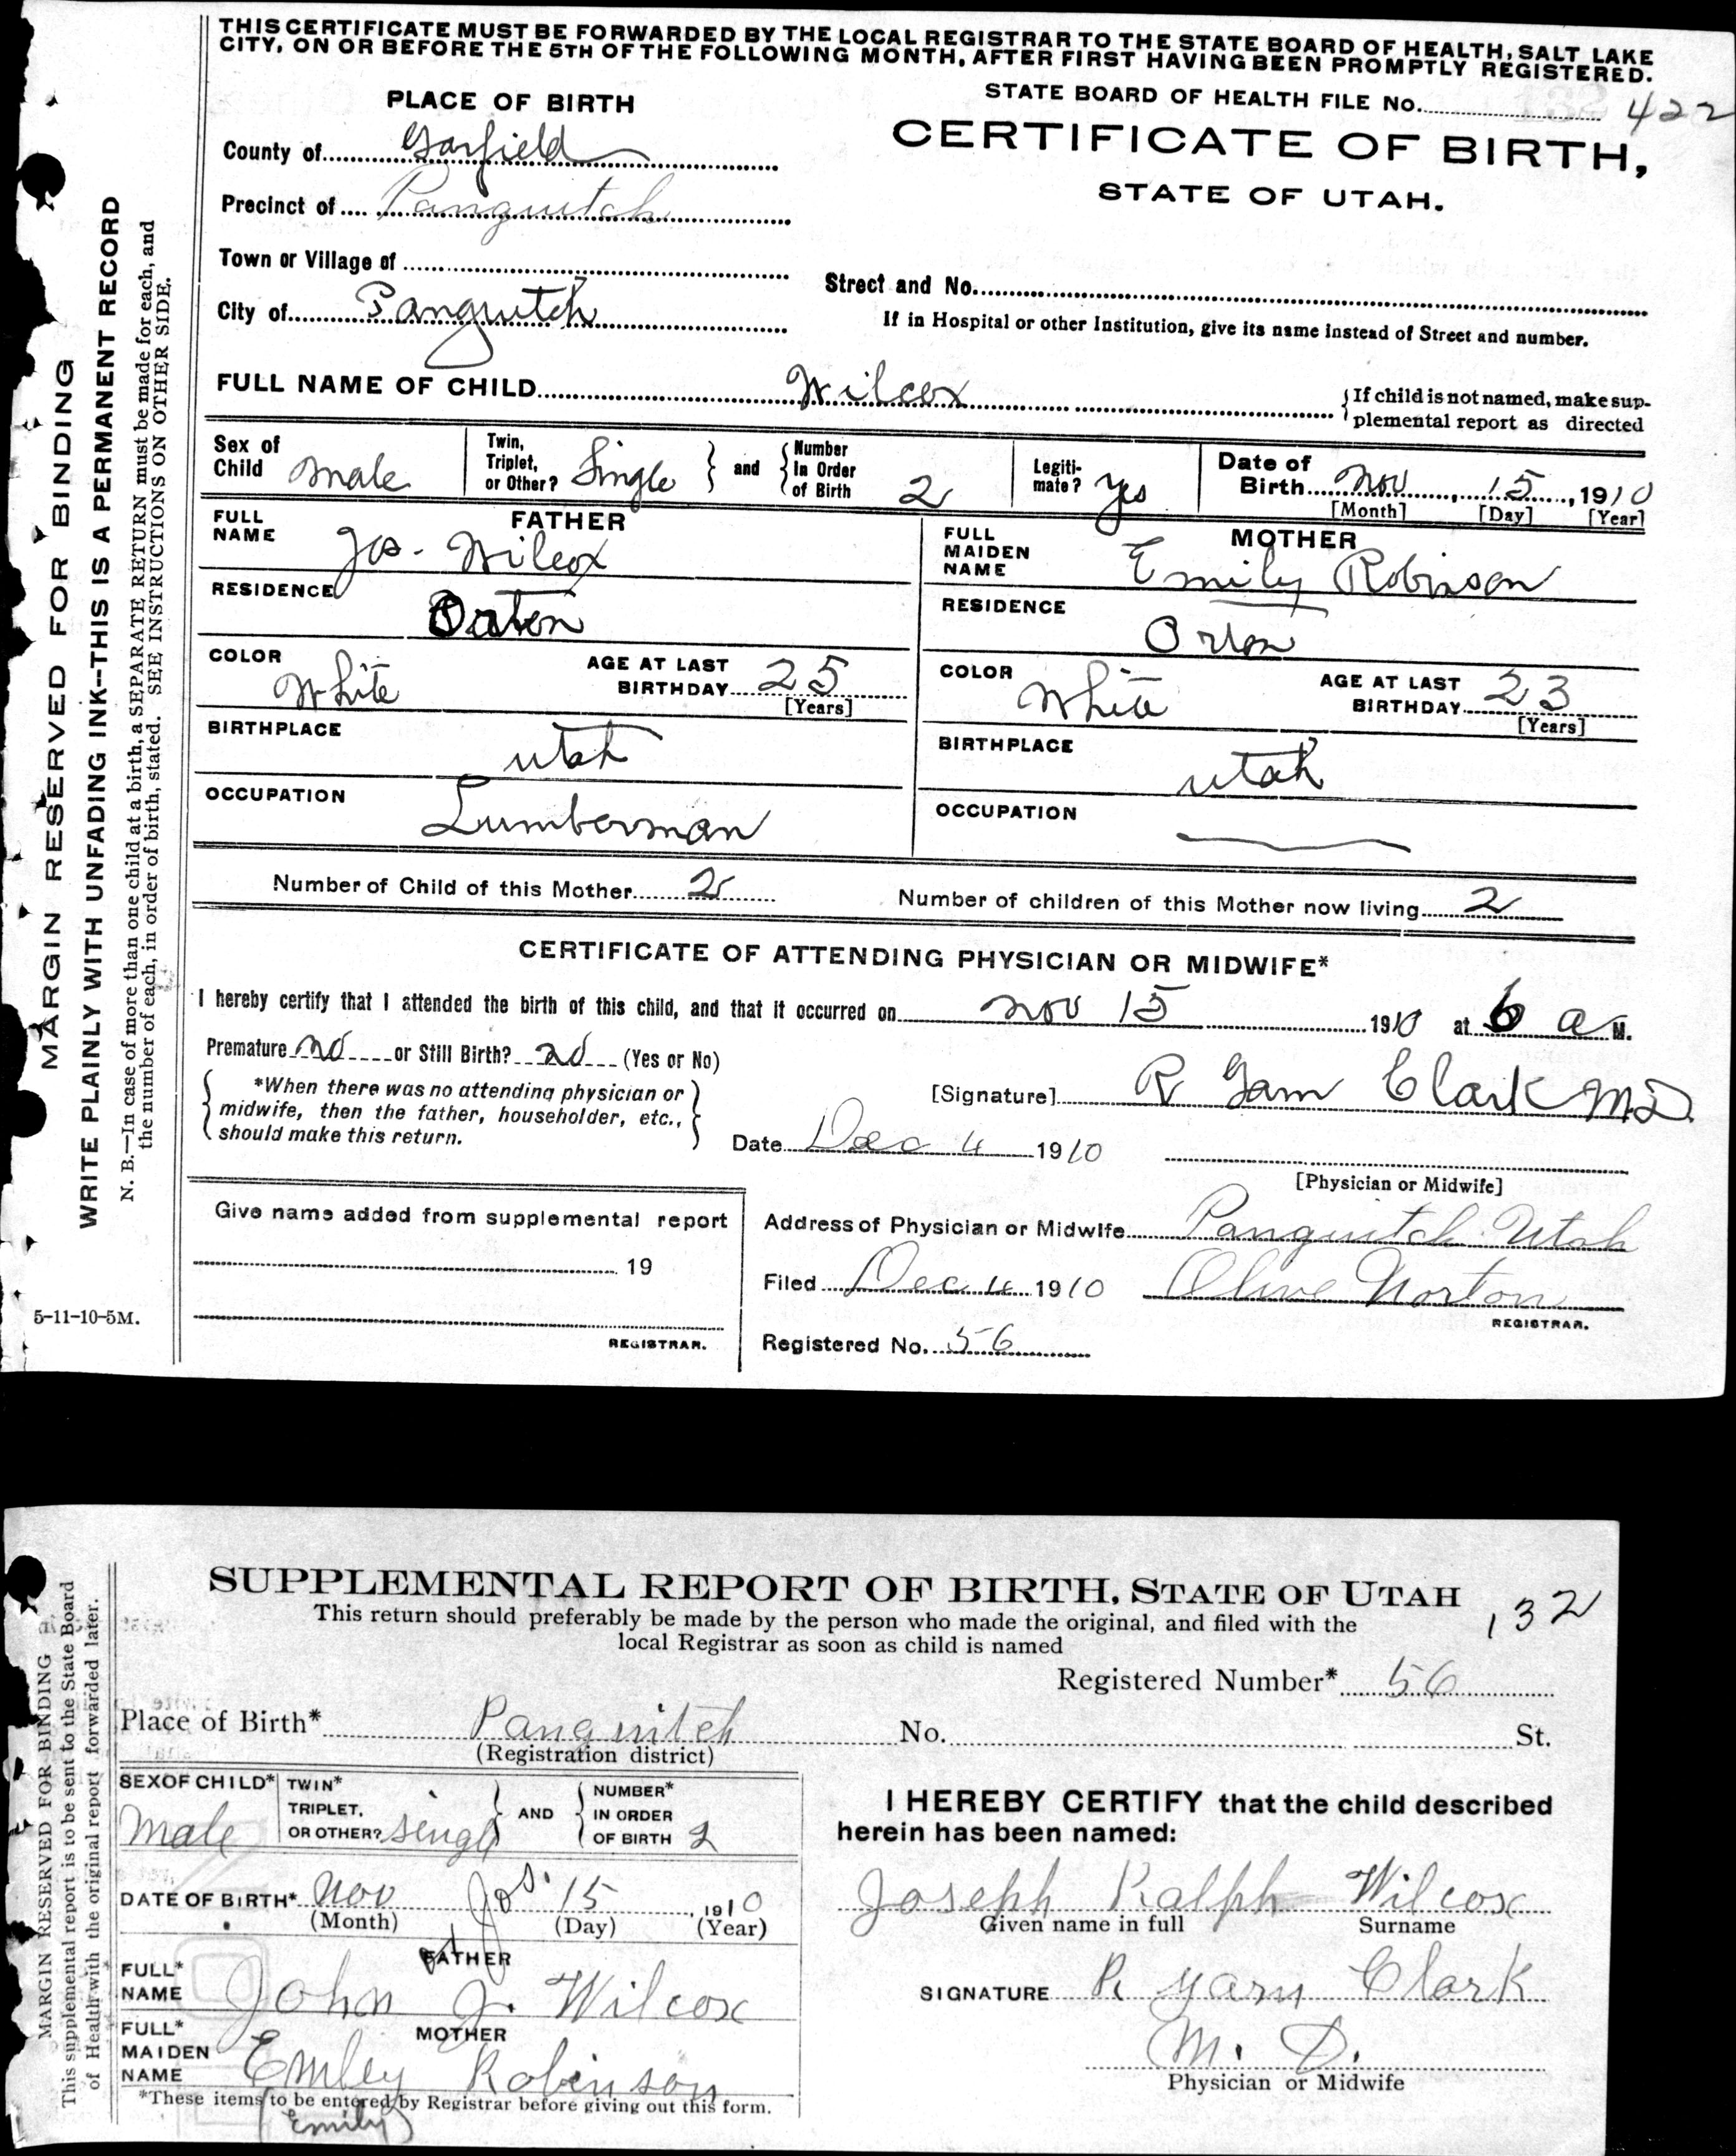 THIS CERTIFICATE MUST BE FORWARDED BY THE LOCAL REGISTRAR TO THE STATE BOARD OF HEALTH, SALT LAKE
CITY, ON OR BEFORE THE 5TH OF THE FOLLOWING MONTH, AFTER FIRST HAVING BEEN PROMPTLY REGISTERED.
STATE BOARD OF HEALTH FILE No. 422
PLACE OF BIRTH
CERTIFICATE OF BIRTH,
STATE OF UTAH.
County of Garfield
Precinct of Panguitch
Town or Village of
Street and No.
City of Panguitch
If in Hospital or other Institution, give its name instead of Street and number.
FULL NAME OF CHILD Wilcox
{If child is not named, make sup-
plemental report as directed
Sex of Child male
Twin, Triplet, or Other? Single } and { Number In Order of Birth 2
Legiti-mate? yes
Date of Birth Nov 15, 1910
[Month] [Day] [Year]
FATHER
FULL NAME Jos. Wilcox
RESIDENCE Orton
COLOR White
AGE AT LAST BIRTHDAY 25
[Years]
BIRTHPLACE Utah
OCCUPATION Lumberman
MOTHER
FULL MAIDEN NAME Emily Robinson
RESIDENCE Orton
COLOR White
AGE AT LAST BIRTHDAY 23
[Years]
BIRTHPLACE Utah
OCCUPATION
Number of Child of this Mother 2
Number of children of this Mother now living 2
CERTIFICATE OF ATTENDING PHYSICIAN OR MIDWIFE*
I hereby certify that I attended the birth of this child, and that it occurred on Nov 15 1910 at 6 a M.
Premature no or Still Birth? no (Yes or No)
{ *When there was no attending physician or
midwife, then the father, householder, etc.,
should make this return. }
[Signature] R Garn Clark M.D.
Date Dec 4 1910
[Physician or Midwife]
Give name added from supplemental report
19
REGISTRAR.
Address of Physician or Midwife Panguitch Utah
Filed Dec 4 1910 Olive Norton
REGISTRAR.
Registered No. 56
MARGIN RESERVED FOR BINDING
WRITE PLAINLY WITH UNFADING INK--THIS IS A PERMANENT RECORD
N. B.—In case of more than one child at a birth, a SEPARATE RETURN must be made for each, and
the number of each, in order of birth, stated. SEE INSTRUCTIONS ON OTHER SIDE.
5-11-10-5M.
SUPPLEMENTAL REPORT OF BIRTH, STATE OF UTAH
132
This return should preferably be made by the person who made the original, and filed with the
local Registrar as soon as child is named
Registered Number* 56
Place of Birth* Panguitch No. St.
(Registration district)
SEX OF CHILD* Male
TWIN* TRIPLET, OR OTHER? single } AND { NUMBER* IN ORDER OF BIRTH 2
DATE OF BIRTH* Nov 15, 1910
(Month) (Day) (Year)
Jos.
FATHER
FULL* NAME John J. Wilcox
MOTHER
FULL* MAIDEN NAME Emley Robinson
*These items to be entered by Registrar before giving out this form.
(Emily)
I HEREBY CERTIFY that the child described
herein has been named:
Joseph Ralph Wilcox
Given name in full Surname
SIGNATURE R Garn Clark
M. D.
Physician or Midwife
MARGIN RESERVED FOR BINDING
This supplemental report is to be sent to the State Board
of Health with the original report forwarded later.